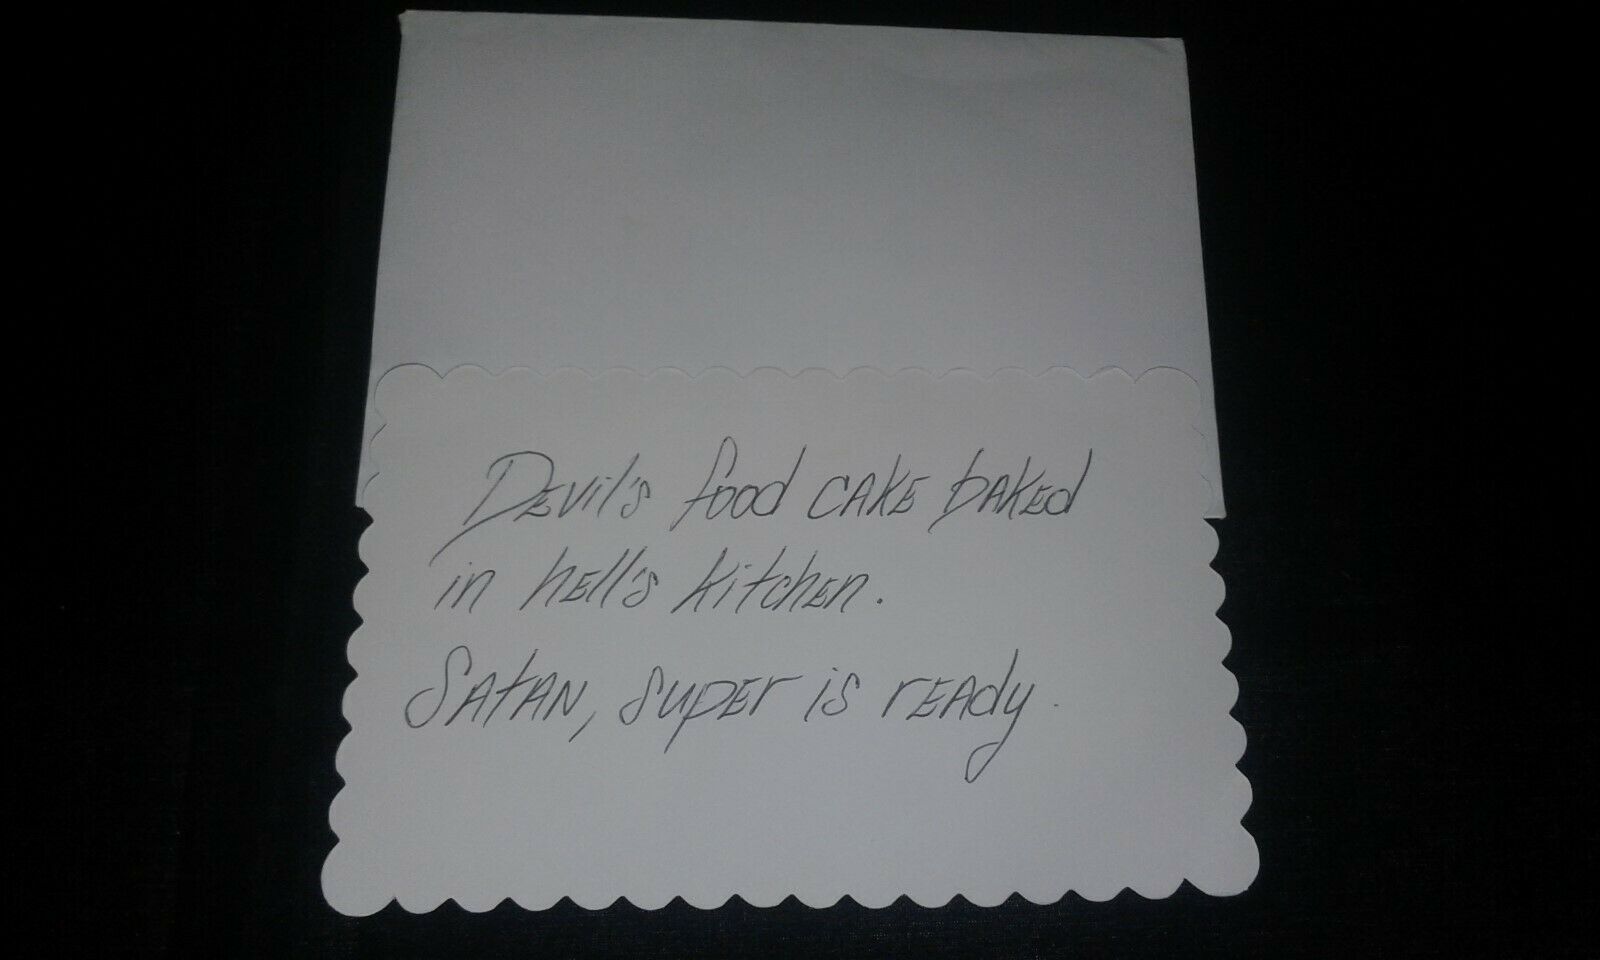 Devil's food cake baked
in hell's kitchen.
Satan, super is ready.